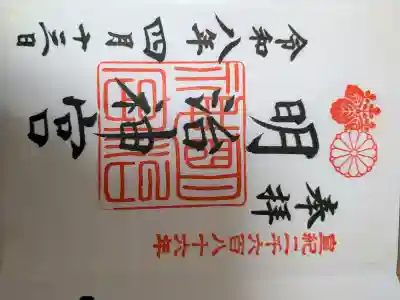 皇紀二千六百八十六年
奉拝
明治神宮
明治神宮
令和八年四月十三日